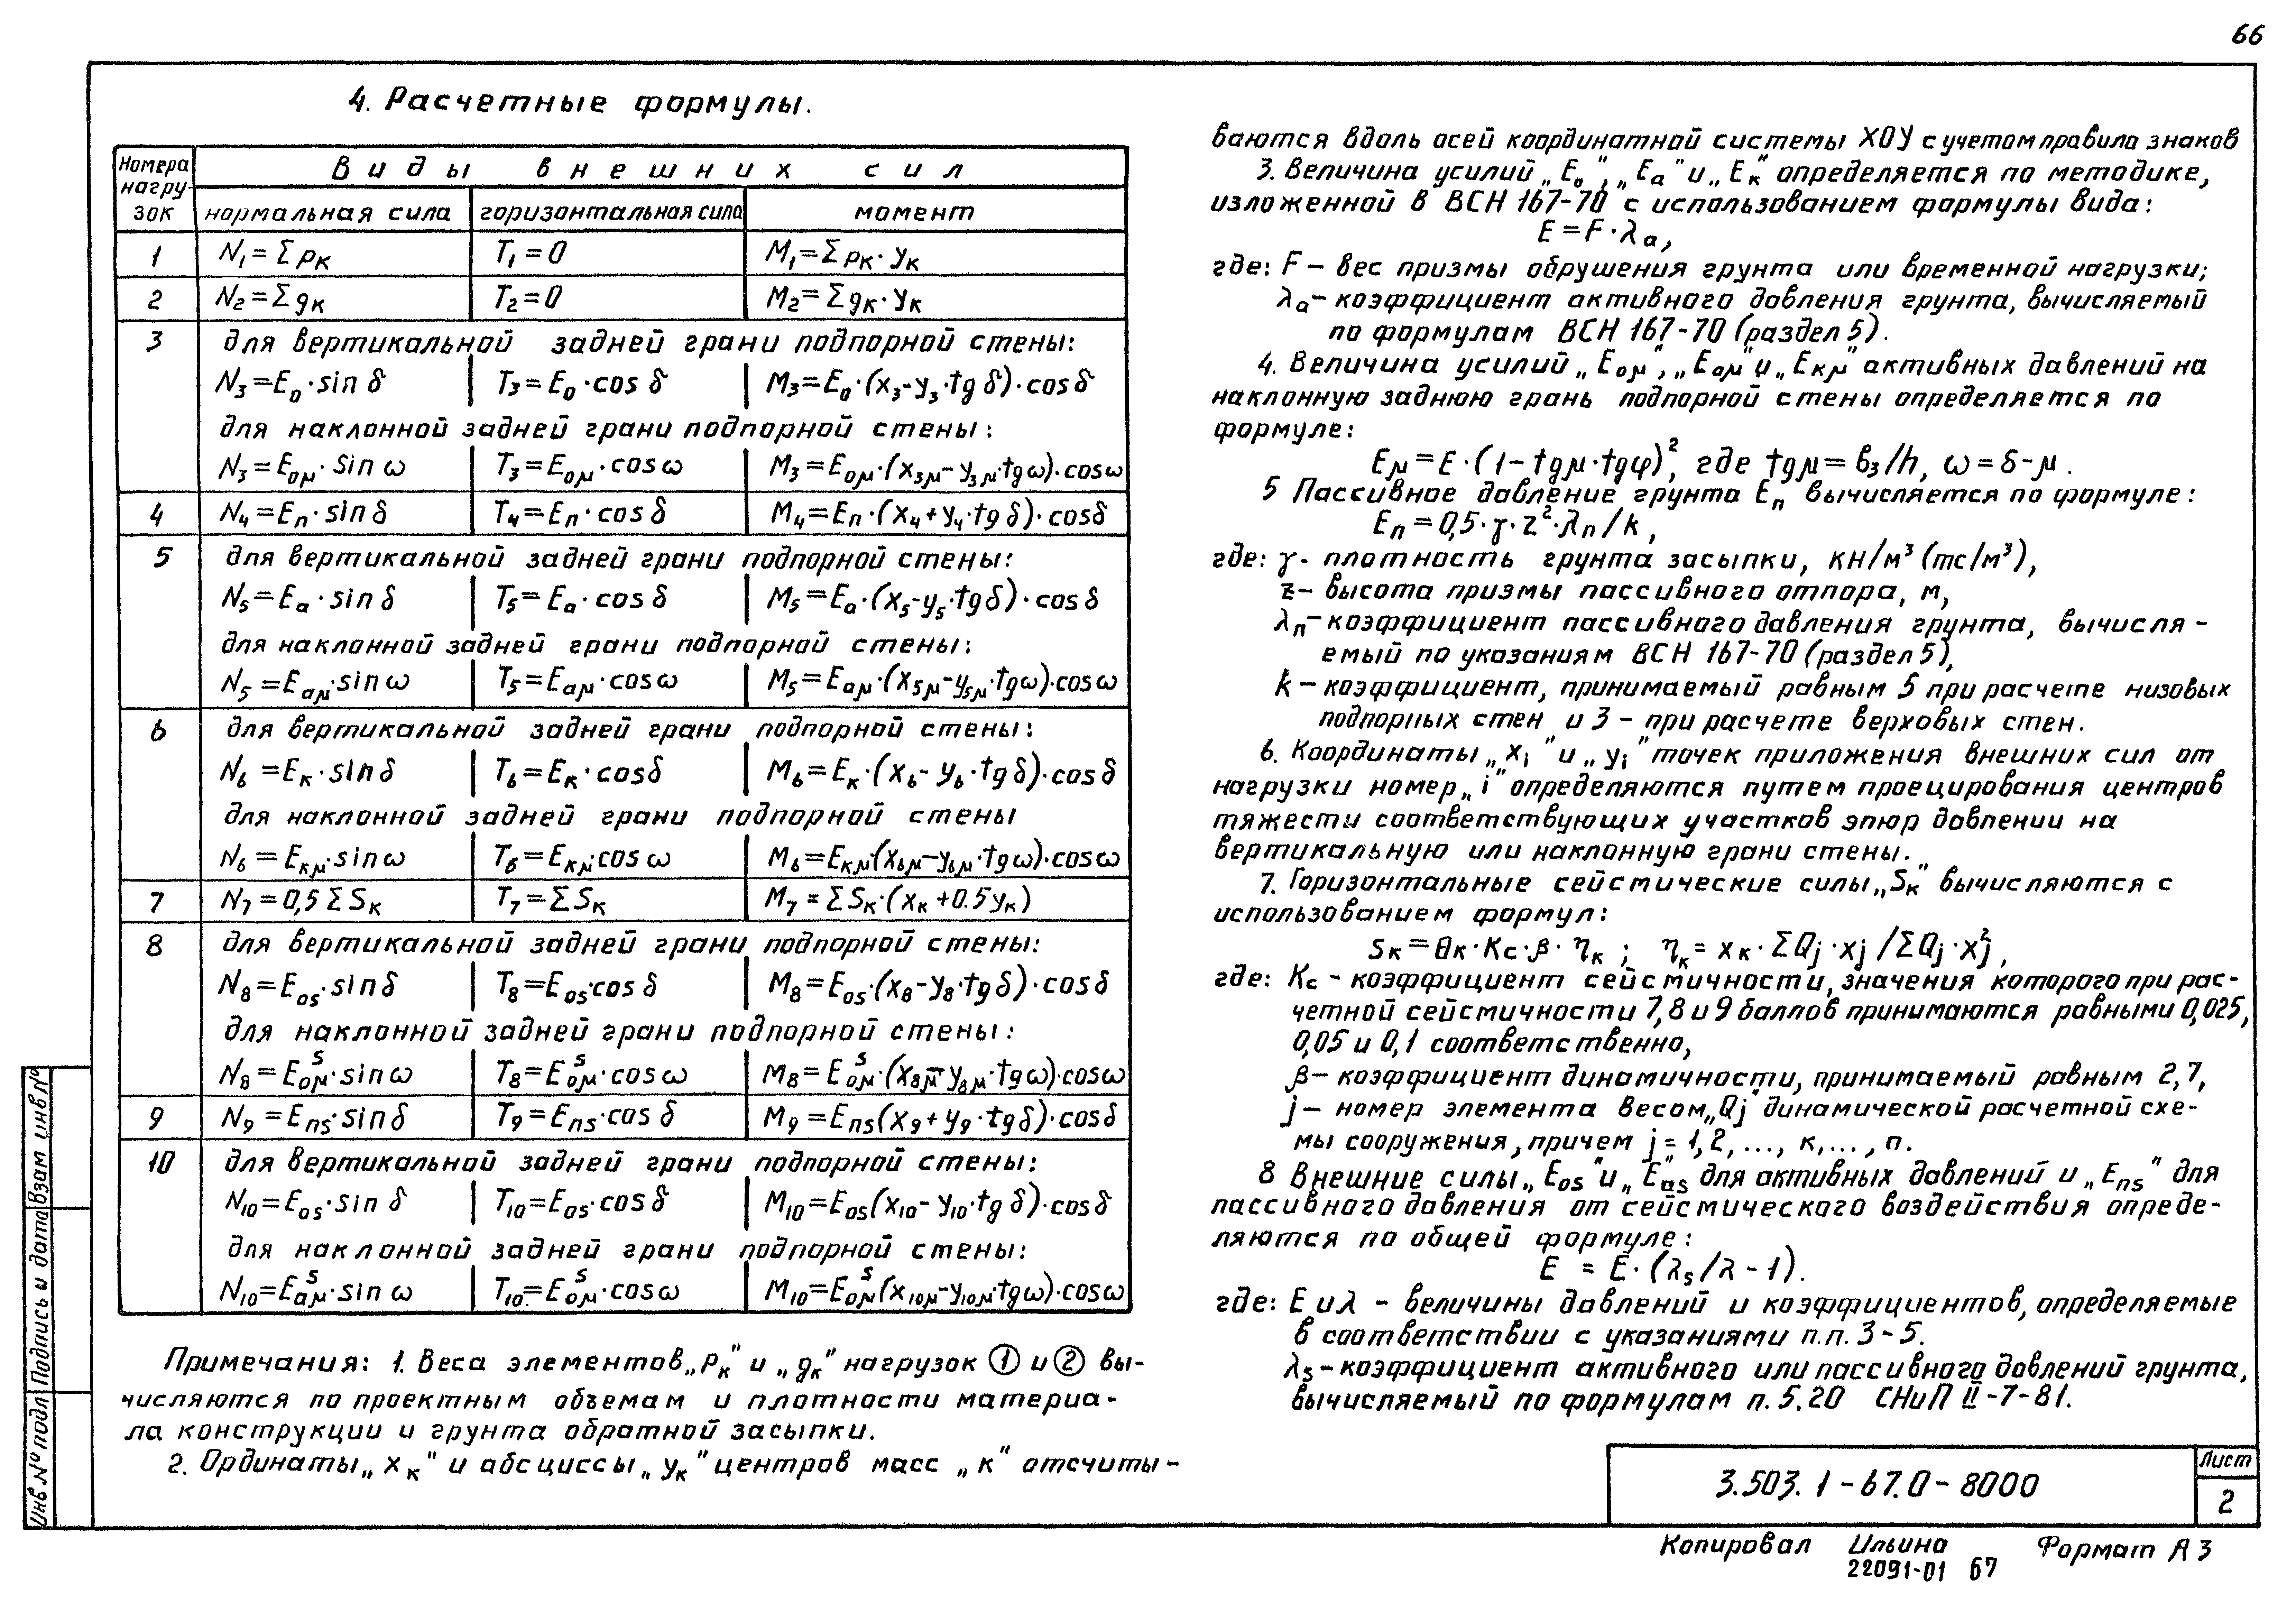 66
4. Расчетные формулы.
Номера нагрузок
Виды внешних сил
нормальная сила | горизонтальная сила | момент
1 | N₁=Σpк | T₁=0 | M₁=Σpк·yк
2 | N₂=Σgк | T₂=0 | M₂=Σgк·yк
3 | для вертикальной задней грани подпорной стены:
N₃=E₀·sin δ | T₃=E₀·cos δ | M₃=E₀·(x₃-y₃·tg δ)·cos δ
для наклонной задней грани подпорной стены:
N₃=Eoμ·sin ω | T₃=Eoμ·cos ω | M₃=Eoμ·(x₃μ-y₃μ·tg ω)·cos ω
4 | N₄=Eп·sin δ | T₄=Eп·cos δ | M₄=Eп·(x₄+y₄·tg δ)·cos δ
5 | для вертикальной задней грани подпорной стены:
N₅=Ea·sin δ | T₅=Ea·cos δ | M₅=Ea·(x₅-y₅·tg δ)·cos δ
для наклонной задней грани подпорной стены:
N₅=Eaμ·sin ω | T₅=Eaμ·cos ω | M₅=Eaμ·(x₅μ-y₅μ·tg ω)·cos ω
6 | для вертикальной задней грани подпорной стены:
N₆=Eк·sin δ | T₆=Eк·cos δ | M₆=Eк·(x₆-y₆·tg δ)·cos δ
для наклонной задней грани подпорной стены
N₆=Eкμ·sin ω | T₆=Eкμ·cos ω | M₆=Eкμ(x₆μ-y₆μ·tg ω)·cos ω
7 | N₇=0,5ΣSк | T₇=ΣSк | M₇=ΣSк·(xк+0.5yк)
8 | для вертикальной задней грани подпорной стены:
N₈=Eos·sin δ | T₈=Eos·cos δ | M₈=Eos·(x₈-y₈·tg δ)·cos δ
для наклонной задней грани подпорной стены:
N₈=Eˢoμ·sin ω | T₈=Eˢoμ·cos ω | M₈=Eˢoμ·(x₈μ-y₈μ·tg ω)·cos ω
9 | N₉=Eпs·sin δ | T₉=Eпs·cos δ | M₉=Eпs(x₉+y₉·tg δ)·cos δ
10 | для вертикальной задней грани подпорной стены:
N₁₀=Eos·sin δ | T₁₀=Eos·cos δ | M₁₀=Eos(x₁₀-y₁₀·tg δ)·cos δ
для наклонной задней грани подпорной стены:
N₁₀=Eˢaμ·sin ω | T₁₀=Eˢoμ·cos ω | M₁₀=Eˢoμ(x₁₀μ-y₁₀μ·tg ω)·cos ω
Примечания: 1. Веса элементов „Pк" и „gк" нагрузок ① и ② вы-
числяются по проектным объемам и плотности материа-
ла конструкции и грунта обратной засыпки.
2. Ординаты „xк" и абсциссы „yк" центров масс „к" отсчиты-
ваются вдоль осей координатной системы ХОУ с учетом правила знаков
3. Величина усилий „E₀", „Ea" и „Eк" определяется по методике,
изложенной в ВСН 167-70 с использованием формулы вида:
E=F·λa,
где: F - вес призмы обрушения грунта или временной нагрузки;
λa - коэффициент активного давления грунта, вычисляемый
по формулам ВСН 167-70 (раздел 5).
4. Величина усилий „Eoμ", „Eaμ" и „Eкμ" активных давлений на
наклонную заднюю грань подпорной стены определяется по
формуле:
Eμ=E·(1-tgμ·tgφ)², где tgμ=b₃/h, ω=δ-μ.
5 Пассивное давление грунта Eп вычисляется по формуле:
Eп=0,5·γ·z²·λп/k,
где: γ- плотность грунта засыпки, кН/м³ (тс/м³),
z- высота призмы пассивного отпора, м,
λп-коэффициент пассивного давления грунта, вычисля-
емый по указаниям ВСН 167-70 (раздел 5),
k - коэффициент, принимаемый равным 5 при расчете низовых
подпорных стен и 3 - при расчете верховых стен.
6. Координаты „xi" и „yi" точек приложения внешних сил от
нагрузки номер „i" определяются путем проецирования центров
тяжести соответствующих участков эпюр давлении на
вертикальную или наклонную грани стены.
7. Горизонтальные сейсмические силы „Sк" вычисляются с
использованием формул:
Sк=Qк·Kc·β·ηк; ηк=xк·ΣQj·xj/ΣQj·xj²,
где: Kc - коэффициент сейсмичности, значения которого при рас-
четной сейсмичности 7, 8 и 9 баллов принимаются равными 0,025,
0,05 и 0,1 соответственно,
β- коэффициент динамичности, принимаемый равным 2,7,
j- номер элемента весом „Qj" динамической расчетной схе-
мы сооружения, причем j=1,2,...,к,...,п.
8 Внешние силы „Eos" и „Eas" для активных давлений и „Eпs" для
пассивного давления от сейсмического воздействия опреде-
ляются по общей формуле:
E = E·(λs/λ-1).
где: E и λ - величины давлений и коэффициентов, определяемые
в соответствии с указаниями п.п. 3-5.
λs-коэффициент активного или пассивного давлений грунта,
вычисляемый по формулам п. 5.20 СНиП II-7-81.
Инв № подл | Подпись и дата | Взам инв №
3.503.1-67.0-8000
Лист
2
Копировал Ильина Формат А3
22091-01 67